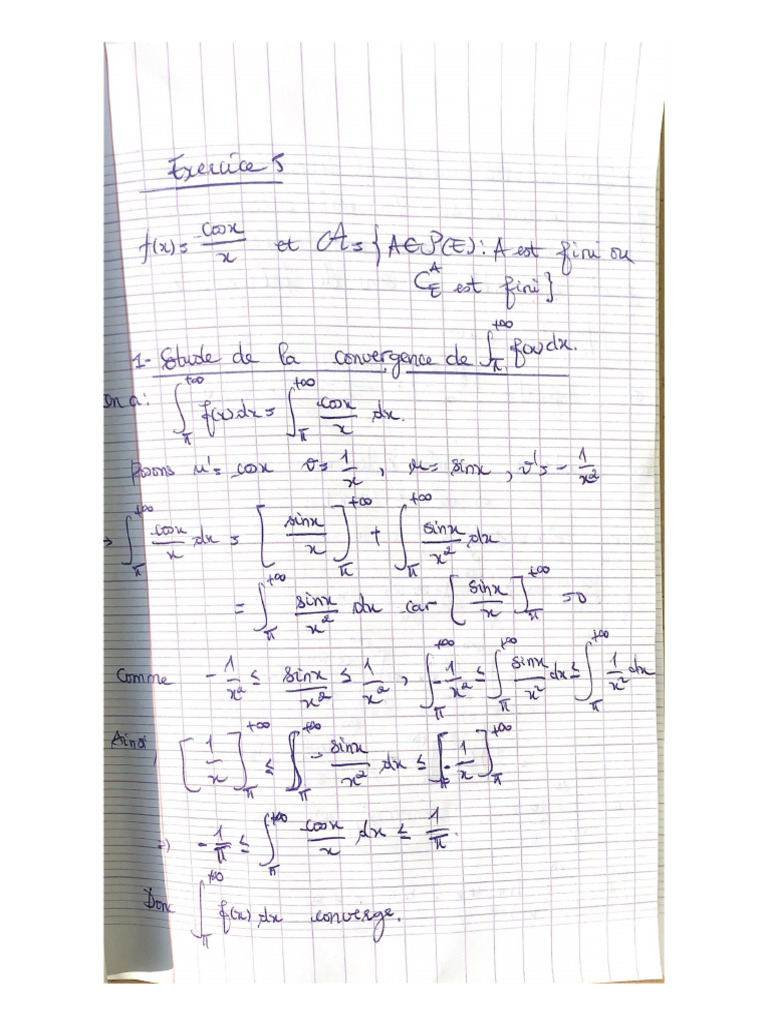 Exercice 5
f(x) = cosx/x et A = {A ∈ P(E) : A est fini ou
C_E^A est fini}
1- Etude de la convergence de ∫_π^{+∞} f(x)dx.
On a : ∫_π^{+∞} f(x)dx = ∫_π^{+∞} cosx/x dx.
posons u' = cosx v = 1/x , u = sinx , v' = - 1/x²
⇒ ∫_π^{+∞} cosx/x dx = [sinx/x]_π^{+∞} + ∫_π^{+∞} sinx/x² dx
= ∫_π^{+∞} sinx/x² dx car [sinx/x]_π^{+∞} = 0
Comme -1/x² ≤ sinx/x² ≤ 1/x² , ∫_π^{+∞} -1/x² ≤ ∫_π^{+∞} sinx/x² dx ≤ ∫_π^{+∞} 1/x² dx
Ainsi, [1/x]_π^{+∞} ≤ ∫_π^{+∞} - sinx/x² dx ≤ [-1/x]_π^{+∞}
⇒ -1/π ≤ ∫_π^{+∞} cosx/x dx ≤ 1/π.
Donc ∫_π^{+∞} f(x) dx converge.